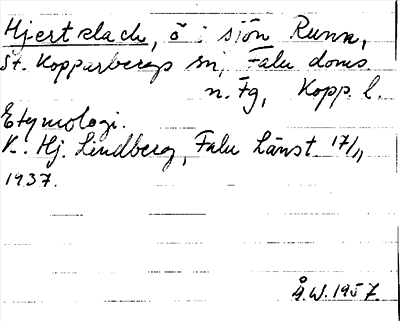 Hjertslach, ö i sjön Runn,
St. Kopparbergs sn, Falu doms
n. Fg, Kopp. l.
Etymologi.
K. Hj. Lindberg, Falu Länst. 17/11
1937.
Å.W. 1957.